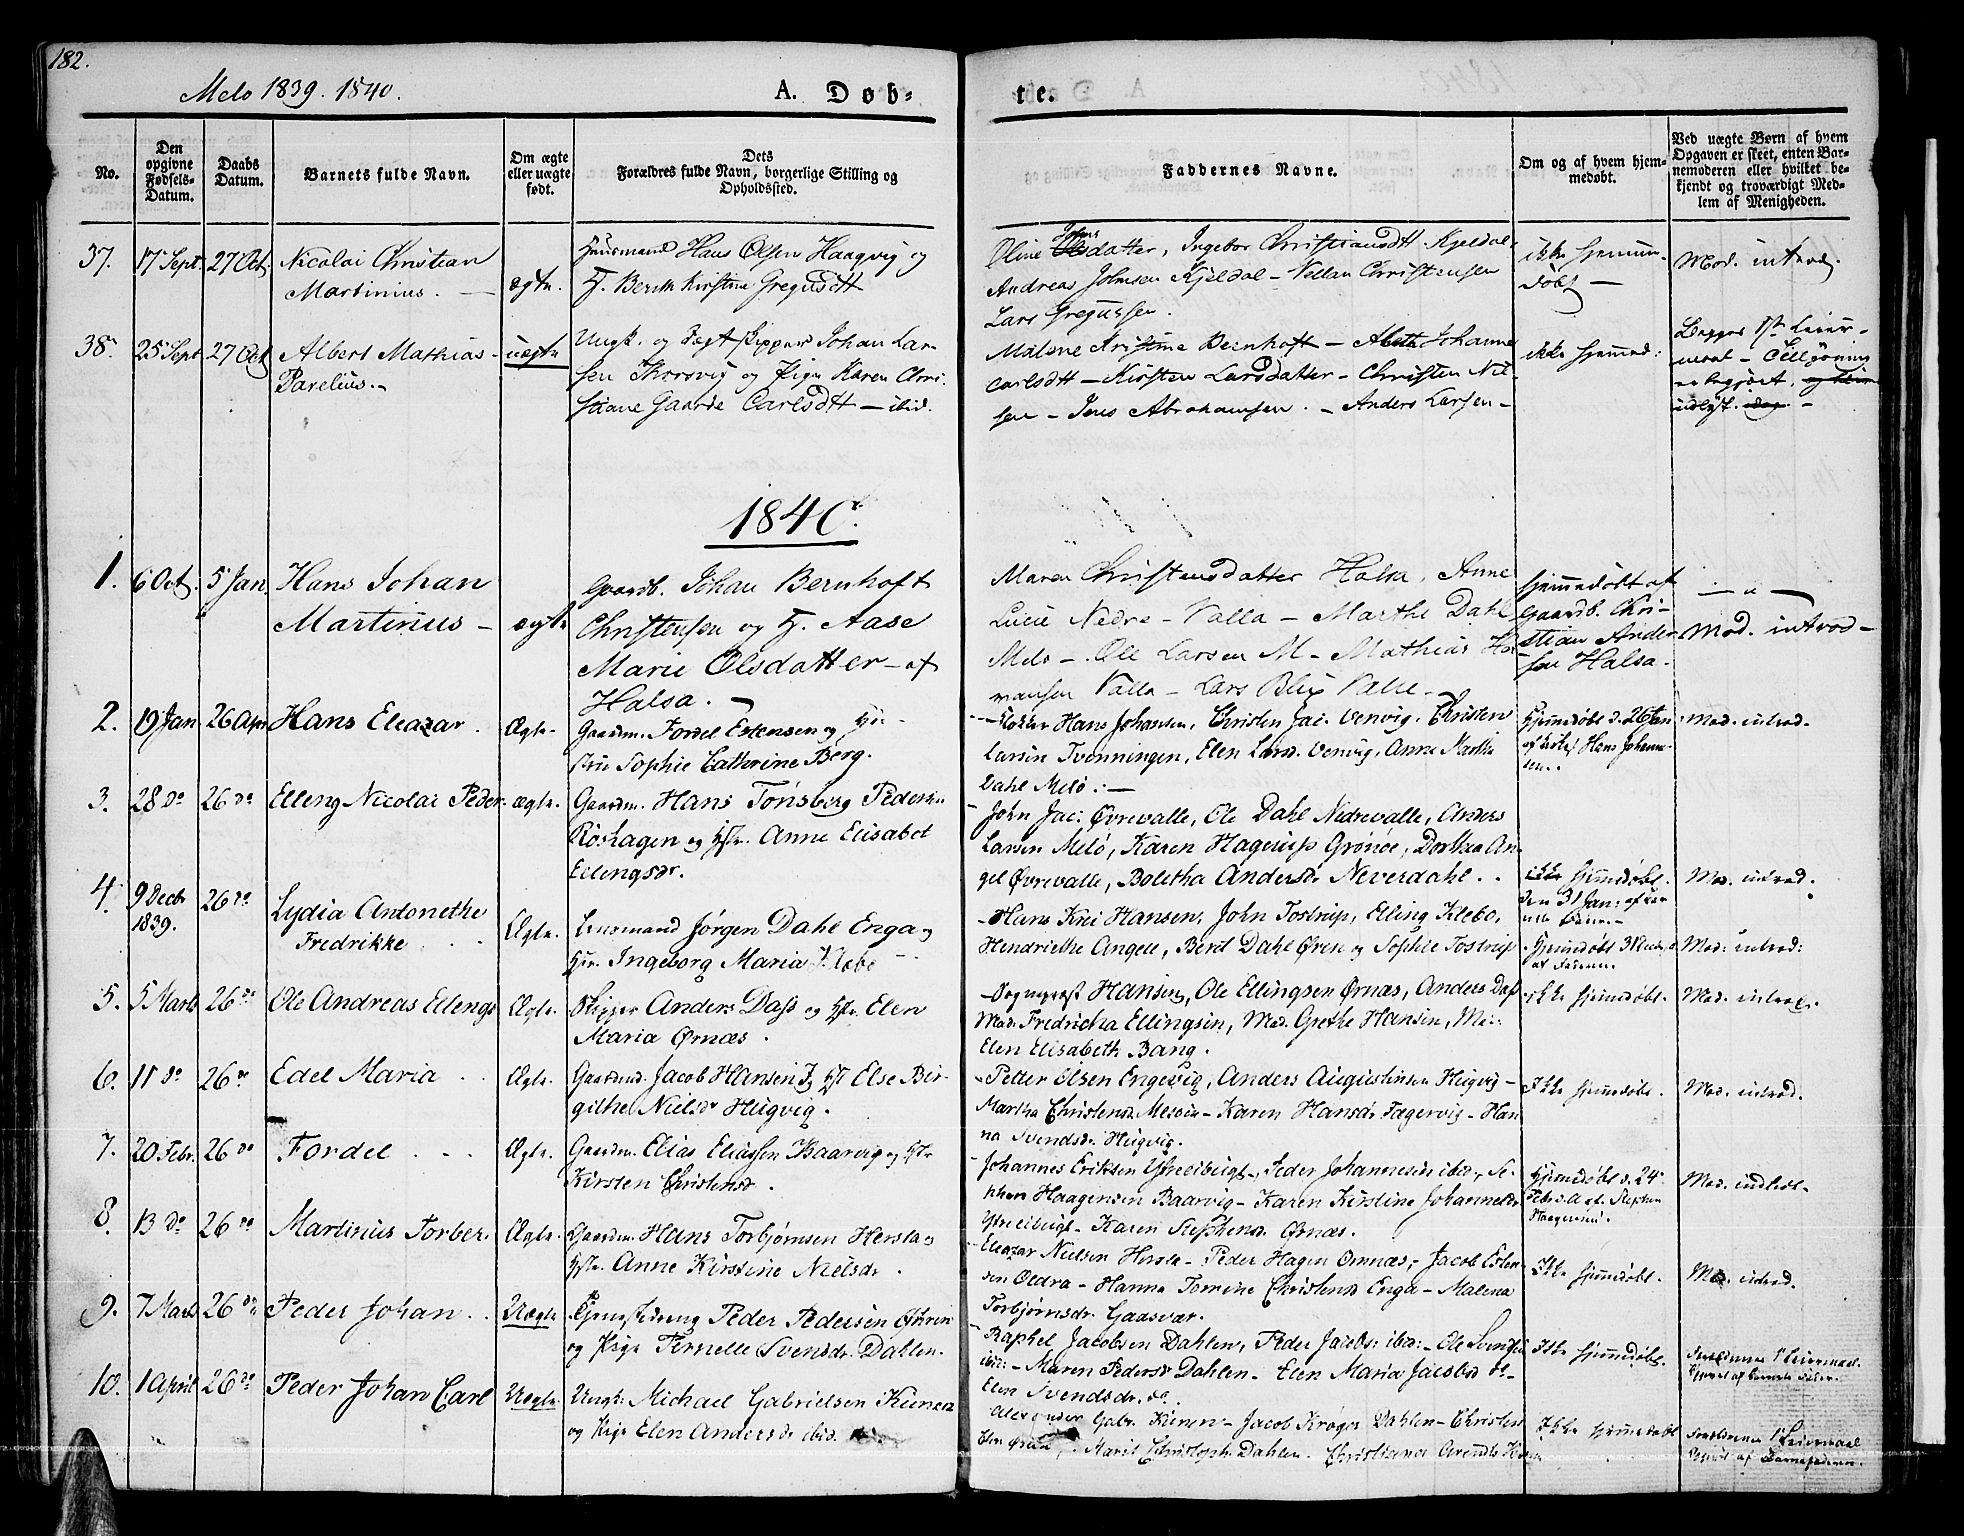 182.
Melo 1839. 1840.
A. Døb-
te.
No.
Den opgivne Fødsels-Datum.
Daabs Datum.
Barnets fulde Navn.
Om ægte eller uægte født.
Dets Forældres fulde Navn, borgerlige Stilling og Opholdssted.
Faddernes Navne.
Om og af hvem hjem-medøbt.
Ved uægte Børn af hvem Opgaven er skeet, enten Bar-nemoderen eller hvilket be-kjendt og troværdigt Med-lem af Menigheden.
37. 17 Sept. 27 Oct. Nicolai Christian
Martinius. —
ægte.
Huusmand Hans Olsen Haagvig og
H. Berith Kirstine Gregusdtt
Oline Johnsdatter, Ingebor Christiansdtt Kjeldal-
Andreas Johnsen Kjeldal - Christensen
Lars Gregussen.
ikke hjemme-
døbt —
Mod. introd.
38. 25 Sept. 27 Oct. Albert Mathias
Parelius. -
uægte
Ungk. og Johan Lar-
sen Thorsvig og Pige Karen Chri-
stiane Gaarde Carlsdtt — ibid.
Malene Kristine Bernhoft — Johanne
Carlsdtt — Kirsten Larsdatter — Christen Nil-
sen — Jens Abrahamsen. — Anders Larsen —
ikke hjemmed:
Begges 1ste Leier-
maal —
1840.
1. 6 Oct. 5 Jan Hans Johan
Martinius —
ægte
Gaardb. Johan Bernhoft
Christensen og H. Aase
Marie Olsdatter — af
Halsa. —
Maren Christensdatter Halsa, Anne
Lucie Nedre-Valla — Marthe Dahl
Melo —. Ole Larsen M — Mathias
Valla — Lars Blix Valle.
hjemmedøbt af
Gaardb. Chri-
stian Ander
sen Halsa.
— " —
Mod. introd —
2. 19 Jan 26 Apr. Hans Eleazar.
Ægte.
Gaardm. Fordel Estensen og Hu-
stru Sophie Cathrine Berg.
Klokker Hans Johansen, Christen Jac. Venvig, Christen
Larsen Tvenningen, Elen Larsd. Venvig, Anne Martha
Dahl Melø. —
Hjemmedøbt d. 26 Jan
af Hans Johan-
sen.
Mod. introd.
3. 28 do 26 do Elleng Nicolai Peder.
Ægte.
Gaardm. Hans Tønsberg Pedersen
Röshagen og Hstr. Anne Elisabet
Ellengsdr.
John Jac: Øvrevalle, Ole Dahl Nedrevalle, Anders
Larsen Melö, Karen Hagerups Grönøe, Dorthea An-
gel Øvrevalle, Boletha Andersdr Neverdahl.
ikke hjemmdøbt.
Mod. introd.
4. 9 Decbr
1839.
26 do
Lydia Antonethe
Fredrikke
Ægte.
Lensmand Jørgen Dahl Enga og
Hstr. Ingeborg Maria Klæbo
Hans Kni Hansen, John Tostrup, Elling Klebo,
Hendrikke Angell, Berit Dahl Øren og Sophie Tostrup
den 31 Jan: af
Hjemmdøbt
af Faderen.
Mod: introd:
5. 5 Marts 26 do Ole Andreas Ellengs
Ægte.
Skipper Anders Dass og Hstr. Elen
Maria Ørnæs.
Sognepræst Hansen, Ole Ellingsen Ørnæs, Anders Dass
Mad. Fredricha Ellingsen, Mad. Grethe Hansen, Mad:
Elen Elisabeth Bang.
ikke hjemmdøbt.
Mod. introd.
6. 11 do 26 do Edel Maria
Ægte.
Gaardmd. Jacob Hansen og Hst Else Bir-
githe Nielsdr Hugvig.
Petter Olsen Engevig, Anders Augustinsen Hugvig —
Martha Christensd. Mesøen — Karen Hansdr. Fagervig — Han-
na Svendsdr. Hugvig.
Ikke hjemmedøbt.
Mod. introd.
7. 20 Febr. 26 do Fordel
Ægte.
Gaardm. Elias Eliassen Baarvig og Hstr
Kirsten Christensd.
Johannes Eriksen Ytreibugt, Peder Johannesen ibid, Ste-
phen Haagensen Baarvig — Karen Kirstine Johannesdr
Ytreibugt — Karen Stephensd. Ørnæs.
Hjemmdøbt d. 24
Febr. af Stephen
Haagensen.
Mod. indledt.
8. 13 do 26 do Martinius Torber.
Ægte.
Gaardm. Hans Torbjørnsen Hersla og
Hstr. Anne Kirstine Nielsdr.
Eleazar Nielsen Hersla — Peder Hagen Ornæs, Jacob Esten-
sen Oldra — Hanna Tomine Christensd Enga — Malena
Torbjørnsdr. Gaasvær.
Ikke hjemmdøbt.
Mod. introd.
9. 7 Marts 26 do Peder Johan
Uægte.
Tjenestedreng Peder Pedersen Øhren
og Pige Pernelle Svensdr. Dahlen.
Raphel Jacobsen Dahlen, Peder Jacobs: ibid: — Ole Svendsen
ibid: — Maren Pedersdr Dahlen — Elen Maria Jacobsd do
Elen Svendsdr. do.
Ikke hjemmdøbt.
Forældrenes 1ste Leiermaal.
10. 1 April 26 do Peder Johan Carl
Uægte.
Ungk: Michael Gabrielsen Kunen
og Pige Elen Andersdr ibid.
Alexander Gabr. Kunen — Jacob Krøger Dahlen — Christen
Marit Christophdr Dahlen. Christiane
Ikke hjemmedøbt
Forældrenes 1ste Leiermaal
af Barnefaderen.